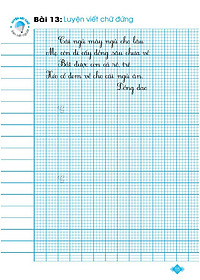 Bài 13: Luyện viết chữ đứng
Cái ngủ mày ngủ cho lâu
Mẹ còn đi cấy đồng sâu chưa về
Bắt được con cá rô, trê
Thì cổ đem về cho cái ngủ ăn.
Đồng dao